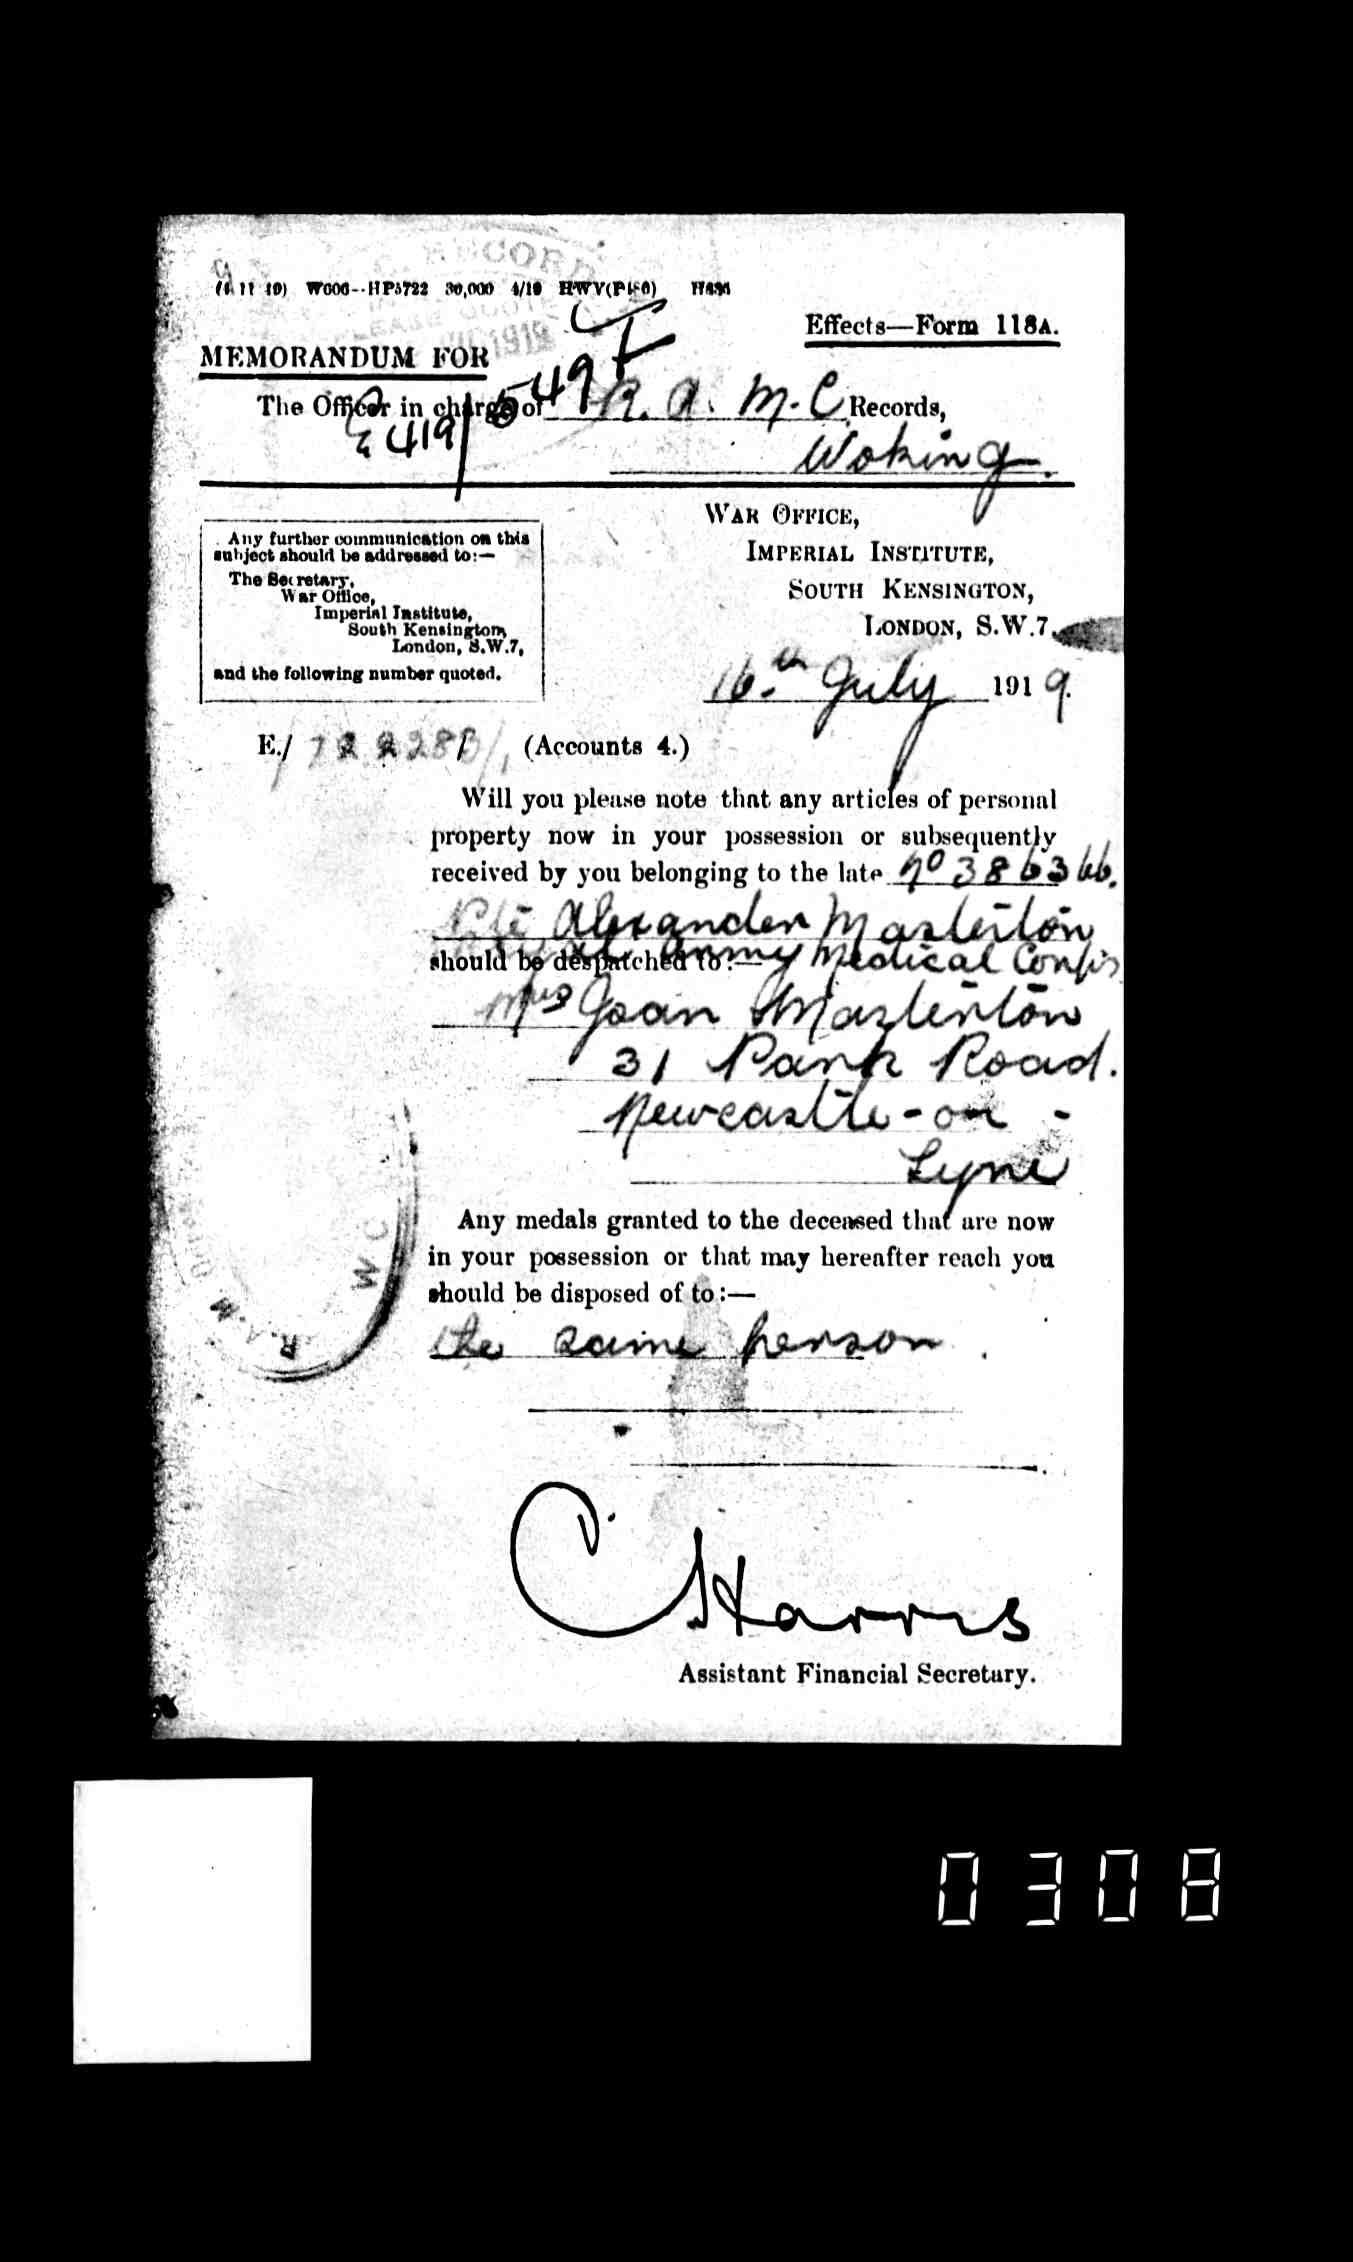 RECORD
1919
Effects—Form 118A.
MEMORANDUM FOR
The Officer in charge of R. A. M. C Records,
E 419/5497
Woking.
WAR OFFICE,
IMPERIAL INSTITUTE,
SOUTH KENSINGTON,
LONDON, S.W.7.
Any further communication on this
subject should be addressed to:—
The Secretary,
War Office,
Imperial Institute,
South Kensington,
London, S.W.7,
and the following number quoted.
16th July 1919.
E./ (Accounts 4.)
Will you please note that any articles of personal
property now in your possession or subsequently
received by you belonging to the late No 386366.
Pte Alexander Masterton
Royal Army Medical Corps
should be despatched to:—
Mrs Joan Masterton
31 Park Road.
Newcastle-on-
Tyne
Any medals granted to the deceased that are now
in your possession or that may hereafter reach you
should be disposed of to:—
the same person.
C Harris
Assistant Financial Secretary.
0308